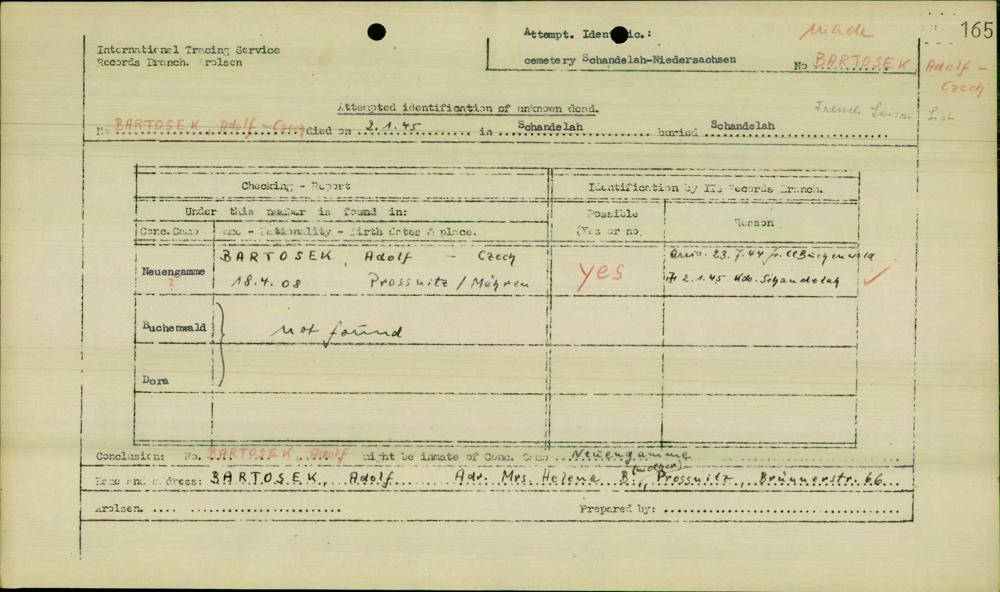 165
International Tracing Service
Records Branch. Arolsen
Attempt. Identific.:
cemetery Schandelah-Niedersachsen
made
No BARTOSEK, Adolf -
Czech
Attempted identification of unknown dead.
French Liaison List
No BARTOSEK, Adolf - Czech died on 2.1.45 in Schandelah buried Schandelah
Checking - Report
Identification by ITS Records Branch.
Under this number is found in:
Possible
(Yes or no)
Reason
Conc.Camp
Name - Nationality - Birth dates & place.
Neuengamme
?
BARTOSEK, Adolf - Czech
18.4.08 Prossnitz / Mähren
yes
23.7.44 fr. CC Buchenwald
2.1.45 Kdo. Schandelah
Buchenwald
not found
Dora
Conclusion: No. BARTOSEK, Adolf might be inmate of Conc. Camp Neuengamme
Name and address: BARTOSEK, Adolf Adr. Mrs. Helena B. (mother), Prossnitz, Brünnerstr. 66
Arolsen.
Prepared by: